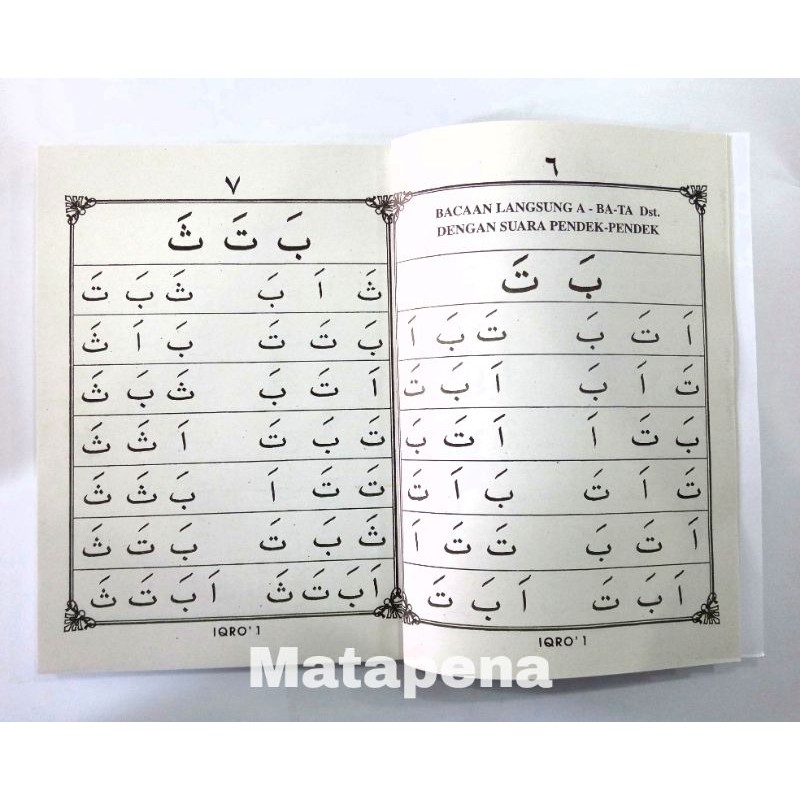 ٦
BACAAN LANGSUNG A - BA-TA Dst.
DENGAN SUARA PENDEK-PENDEK
بَ تَ
اَ تَ بَ تَ بَ اَ
تَ اَ بَ اَ بَ تَ
بَ تَ اَ اَ تَ بَ
تَ اَ تَ بَ اَ تَ
اَ تَ بَ تَ تَ اَ
اَ بَ تَ اَ بَ تَ
IQRO' 1
٧
بَ تَ ثَ
ثَ اَ بَ ثَ بَ تَ
بَ تَ تَ بَ اَ ثَ
اَ تَ بَ ثَ بَ ثَ
تَ بَ تَ اَ ثَ ثَ
تَ تَ اَ بَ ثَ ثَ
ثَ بَ تَ بَ تَ ثَ
اَ بَ تَ ثَ اَ بَ تَ ثَ
IQRO' 1
Matapena